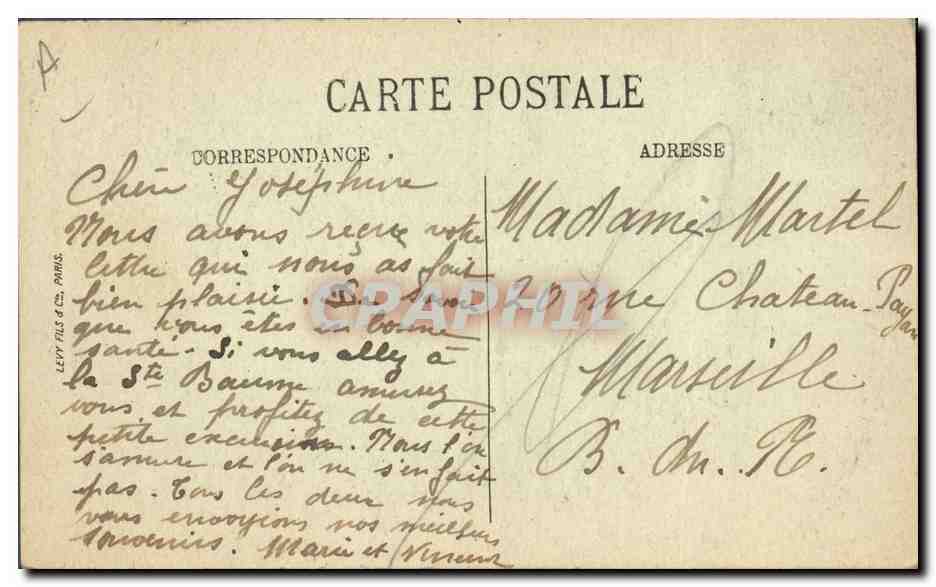 A
CARTE POSTALE
CORRESPONDANCE
Chère Joséphine
Nous avons reçue votre
lettre qui nous as fait
bien plaisir.
que vous êtes en bonne
santé. Si vous allez à
la Ste Baume amusez
vous et profitez de cette
petite excursion. Nous l'on
s'amuse et l'on ne s'en fait
pas. Tous les deux nous
vous envoyions nos meilleurs
souvenirs. Marie et Vincent
ADRESSE
Madame Martel
20 rue Chateau-Payan
Marseille
B. du. R.
LEVY FILS & Cie, PARIS.
CPAPHIL